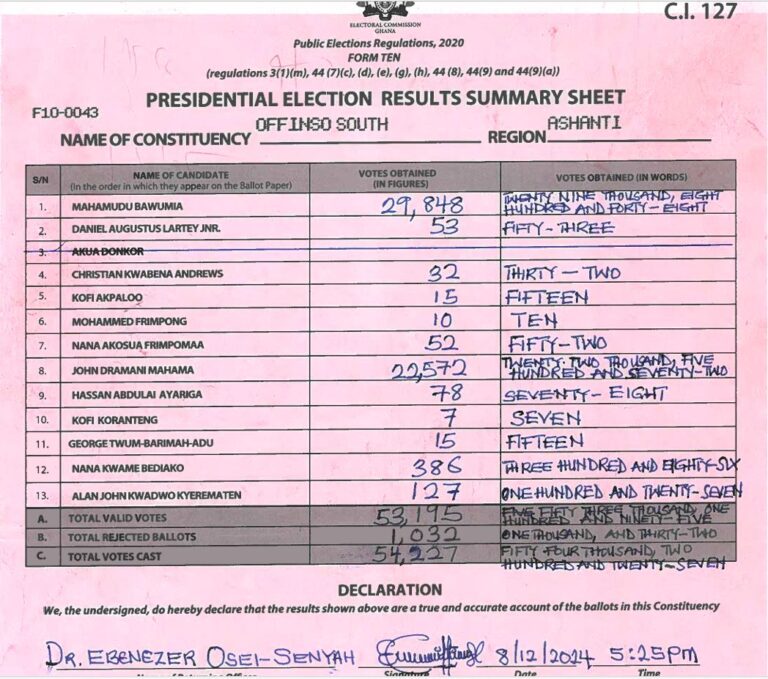 C.I. 127
ELECTORAL COMMISSION
GHANA
Public Elections Regulations, 2020
FORM TEN
(regulations 3(1)(m), 44 (7)(c), (d), (e), (g), (h), 44 (8), 44(9) and 44(9)(a))
PRESIDENTIAL ELECTION RESULTS SUMMARY SHEET
F10-0043
NAME OF CONSTITUENCY OFFINSO SOUTH REGION ASHANTI
S/N NAME OF CANDIDATE (In the order in which they appear on the Ballot Paper) VOTES OBTAINED (IN FIGURES) VOTES OBTAINED (IN WORDS)
1. MAHAMUDU BAWUMIA 29,848 TWENTY NINE THOUSAND, EIGHT HUNDRED AND FORTY-EIGHT
2. DANIEL AUGUSTUS LARTEY JNR. 53 FIFTY-THREE
3. AKUA DONKOR
4. CHRISTIAN KWABENA ANDREWS 32 THIRTY-TWO
5. KOFI AKPALOO 15 FIFTEEN
6. MOHAMMED FRIMPONG 10 TEN
7. NANA AKOSUA FRIMPOMAA 52 FIFTY-TWO
8. JOHN DRAMANI MAHAMA 22,572 TWENTY-TWO THOUSAND, FIVE HUNDRED AND SEVENTY-TWO
9. HASSAN ABDULAI AYARIGA 78 SEVENTY-EIGHT
10. KOFI KORANTENG 7 SEVEN
11. GEORGE TWUM-BARIMAH-ADU 15 FIFTEEN
12. NANA KWAME BEDIAKO 386 THREE HUNDRED AND EIGHTY-SIX
13. ALAN JOHN KWADWO KYEREMATEN 127 ONE HUNDRED AND TWENTY-SEVEN
A. TOTAL VALID VOTES 53,195 FIVE FIFTY THREE THOUSAND, ONE HUNDRED AND NINETY-FIVE
B. TOTAL REJECTED BALLOTS 1,032 ONE THOUSAND, AND THIRTY-TWO
C. TOTAL VOTES CAST 54,227 FIFTY FOUR THOUSAND, TWO HUNDRED AND TWENTY-SEVEN
DECLARATION
We, the undersigned, do hereby declare that the results shown above are a true and accurate account of the ballots in this Constituency
DR. EBENEZER OSEI-SENYAH 8/12/2024 5:25PM
Signature Date Time